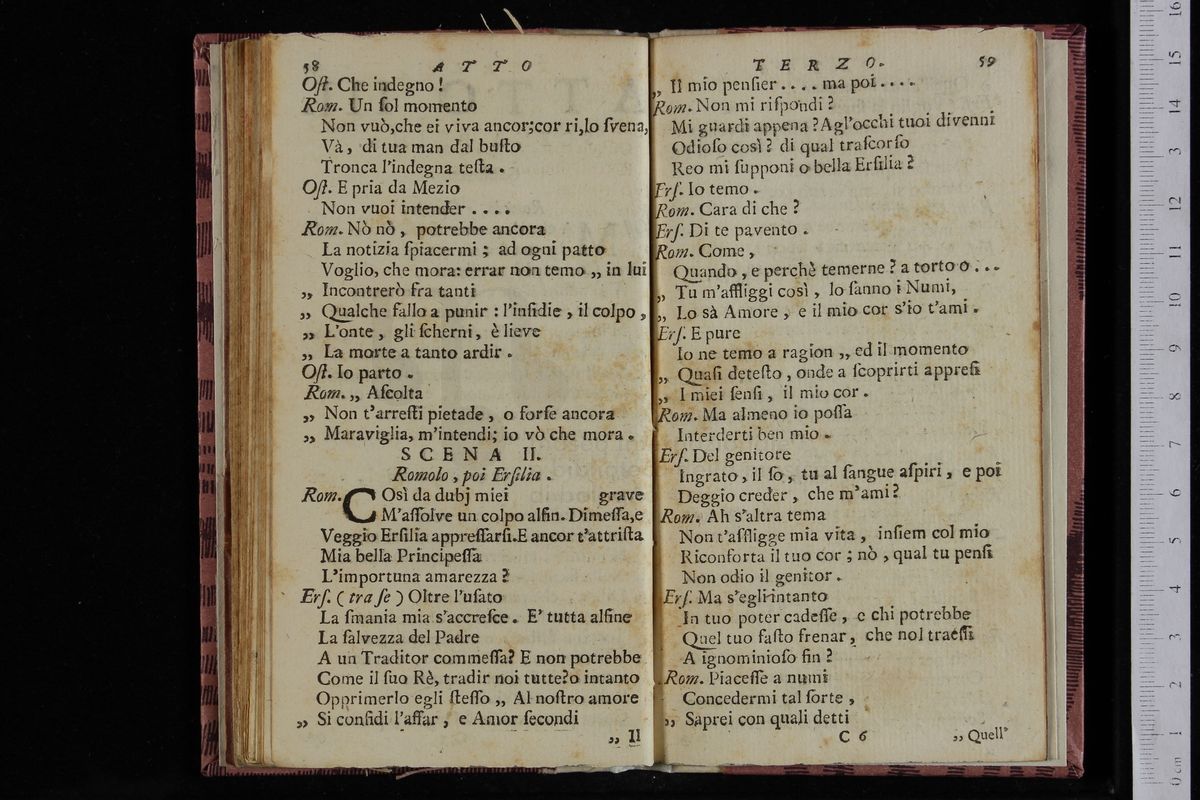 58 ATTO
Oſt. Che indegno!
Rom. Un ſol momento
Non vuò,che ei viva ancor;cor ri,lo ſvena,
Và, di tua man dal buſto
Tronca l'indegna teſta.
Oſt. E pria da Mezio
Non vuoi intender ....
Rom. Nò nò, potrebbe ancora
La notizia ſpiacermi; ad ogni patto
Voglio, che mora: errar non temo „ in lui
„ Incontrerò fra tanti
„ Qualche fallo a punir: l'inſidie, il colpo,
„ L'onte, gli ſcherni, è lieve
„ La morte a tanto ardir.
Oſt. Io parto.
Rom. „ Aſcolta
„ Non t'arreſti pietade, o forſe ancora
„ Maraviglia, m'intendi; io vò che mora.
SCENA II.
Romolo, poi Erſilia.
Rom. COsì da dubj miei grave
M'aſſolve un colpo alfin. Dimeſſa,e
Veggio Erſilia appreſſarſi.E ancor t'attriſta
Mia bella Principeſſa
L'importuna amarezza?
Erſ. (tra ſe) Oltre l'uſato
La ſmania mia s'accreſce. E' tutta alfine
La ſalvezza del Padre
A un Traditor commeſſa? E non potrebbe
Come il ſuo Rè, tradir noi tutte?o intanto
Opprimerlo egli ſteſſo „ Al noſtro amore
„ Si confidi l'affar, e Amor ſecondi
„ Il
TERZO. 59
„ Il mio penſier .... ma poi ....
Rom. Non mi riſpondi?
Mi guardi appena? Agl'occhi tuoi divenni
Odioſo così? di qual traſcorſo
Reo mi ſupponi o bella Erſilia?
Erſ. Io temo.
Rom. Cara di che?
Erſ. Di te pavento.
Rom. Come,
Quando, e perchè temerne? a torto o...
„ Tu m'affliggi così, lo ſanno i Numi,
„ Lo sà Amore, e il mio cor s'io t'ami.
Erſ. E pure
Io ne temo a ragion „ ed il momento
„ Quaſi deteſto, onde a ſcoprirti appreſi
„ I miei ſenſi, il mio cor.
Rom. Ma almeno io poſſa
Interderti ben mio.
Erſ. Del genitore
Ingrato, il ſo, tu al ſangue aſpiri, e poi
Deggio creder, che m'ami?
Rom. Ah s'altra tema
Non t'affligge mia vita, inſiem col mio
Riconforta il tuo cor; nò, qual tu penſi
Non odio il genitor.
Erſ. Ma s'egli intanto
In tuo poter cadeſſe, e chi potrebbe
Quel tuo faſto frenar, che nol traeſſi
A ignominioſo fin?
Rom. Piaceſſe a numi
Concedermi tal ſorte,
„ Saprei con quali detti
C 6 „ Quell'
0 cm 1 2 3 4 5 6 7 8 9 10 11 12 13 14 15 16